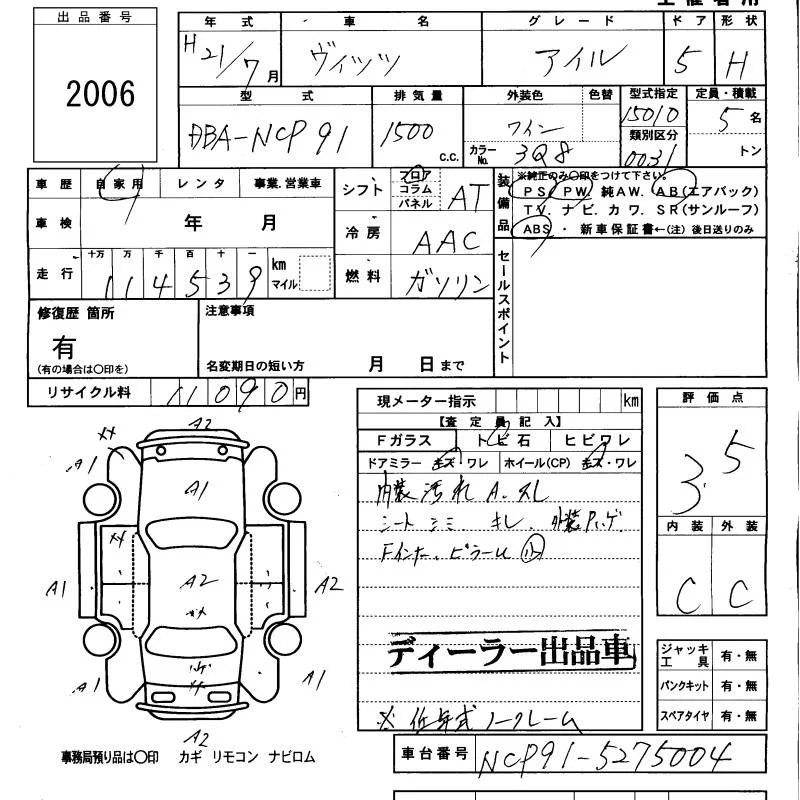 出品番号
2006
年式 車名 グレード ドア 形状
H21/7月 ヴィッツ アイル 5 H
型式 排気量 外装色 色替 型式指定 定員・積載
DBA-NCP91 1500 c.c. ワイン 15010 5名
カラーNo. 3Q8 類別区分 0031 トン
車歴 自家用 レンタ 事業.営業車
車検 年 月
走行 十万 万 千 百 十 一
114539 km マイル
シフト フロア コラム パネル AT
冷房 AAC
燃料 ガソリン
装備品 ※純正のみ○印をつけて下さい。
PS. PW. 純AW. AB(エアバック)
TV. ナビ. カワ. SR(サンルーフ)
ABS ・ 新車保証書←(注) 後日送りのみ
セールスポイント
修復歴 箇所
有
(有の場合は○印を)
注意事項
名変期日の短い方 月 日まで
リサイクル料 11090円
現メーター指示 km
【査定員記入】
Fガラス トビ石 ヒビワレ
ドアミラー キズ・ワレ ホイール(CP) キズ・ワレ
内装汚れ A.スレ
シートシミ. キレ. 外装P.ハゲ.
Fインナー. ピラーU 小
ディーラー出品車
※ 低年式 ノークレーム
評価点
3.5
内装 外装
C C
ジャッキ工具 有・無
パンクキット 有・無
スペアタイヤ 有・無
車台番号 NCP91-5275004
A2
メメ
A1
A1
A1
メメ
A1
A2
A2
A1
A1
A2
事務局預り品は○印 カギ リモコン ナビロム